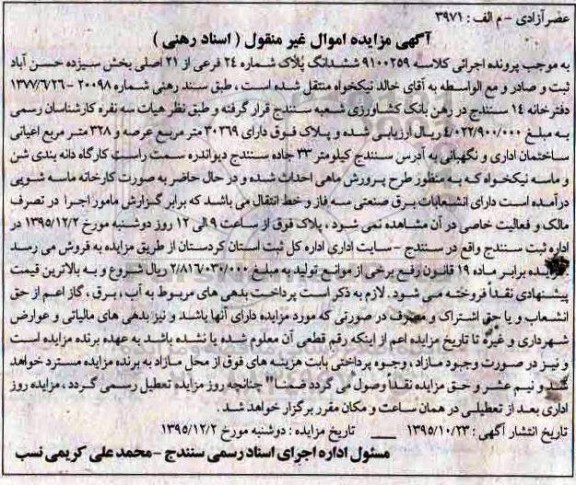 عصر آزادی - م الف : ۳۹۷۱
آگهی مزایده اموال غیر منقول ( اسناد رهنی )
به موجب پرونده اجرائی کلاسه ۹۱۰۰۲۵۹ ششدانگ پلاک شماره ۲۴ فرعی از ۲۱ اصلی بخش سیزده حسن آباد
ثبت و صادر و مع الواسطه به آقای خالد نیکخواه منتقل شده است ، طبق سند رهنی شماره ۲۰۰۹۸ - ۱۳۷۷/۶/۲۶
دفترخانه ۱۴ سنندج در رهن بانک کشاورزی شعبه سنندج قرار گرفته و طبق نظر هیات سه نفره کارشناسان رسمی
به مبلغ ۴/۰۲۲/۹۰۰/۰۰۰ ریال ارزیابی شده و پلاک فوق دارای ۳۰۳۶۹ متر مربع عرصه و ۳۲۸ متر مربع اعیانی
ساختمان اداری و نگهبانی به آدرس سنندج کیلومتر ۳۳ جاده سنندج دیواندره سمت راست کارگاه دانه بندی شن
و ماسه نیکخواه که به منظور طرح پرورش ماهی احداث شده و در حال حاضر به صورت کارخانه ماسه شویی
درآمده است دارای انشعابات برق صنعتی سه فاز و خط انتقال می باشد که برابر گزارش مامور اجرا در تصرف
مالک و فعالیت خاصی در آن مشاهده نمی شود ، پلاک فوق از ساعت ۹ الی ۱۲ روز دوشنبه مورخ ۱۳۹۵/۱۲/۲ در
اداره ثبت سنندج واقع در سنندج - سایت اداری اداره کل ثبت استان کردستان از طریق مزایده به فروش می رسد
مزایده برابر ماده ۱۹ قانون رفع برخی از موانع تولید به مبلغ ۲/۸۱۶/۰۳۰/۰۰۰ ریال شروع و به بالاترین قیمت
پیشنهادی نقداً فروخته می شود . لازم به ذکر است پرداخت بدهی های مربوط به آب ، برق ، گاز اعم از حق
انشعاب و یا حق اشتراک و مصرف در صورتی که مورد مزایده دارای آنها باشد و نیز بدهی های مالیاتی و عوارض
شهرداری و غیره تا تاریخ مزایده اعم از اینکه رقم قطعی آن معلوم شده یا نشده باشد به عهده برنده مزایده است
و نیز در صورت وجود مازاد ، وجوه پرداختی بابت هزینه های فوق از محل مازاد به برنده مزایده مسترد خواهد
شد و نیم عشر و حق مزایده نقداً وصول می گردد ضمناً" چنانچه روز مزایده تعطیل رسمی گردد ، مزایده روز
اداری بعد از تعطیلی در همان ساعت و مکان مقرر برگزار خواهد شد .
تاریخ انتشار آگهی : ۱۳۹۵/۱۰/۲۳ __ تاریخ مزایده : دوشنبه مورخ ۱۳۹۵/۱۲/۲
مسئول اداره اجرای اسناد رسمی سنندج - محمد علی کریمی نسب